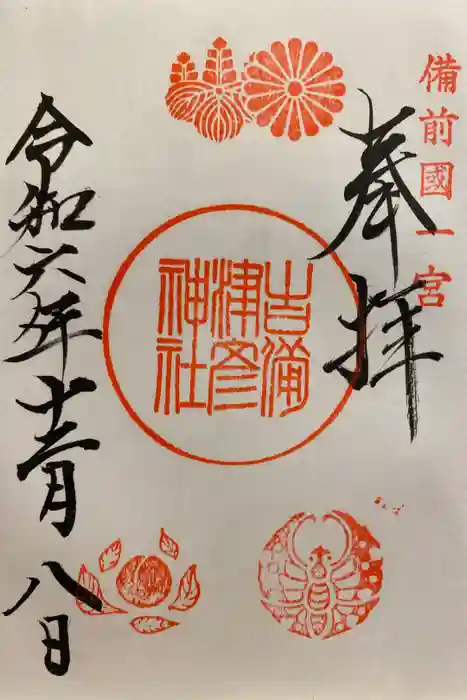 備前國一宮
奉拝
吉備
津彦
神社
令和六年十二月八日